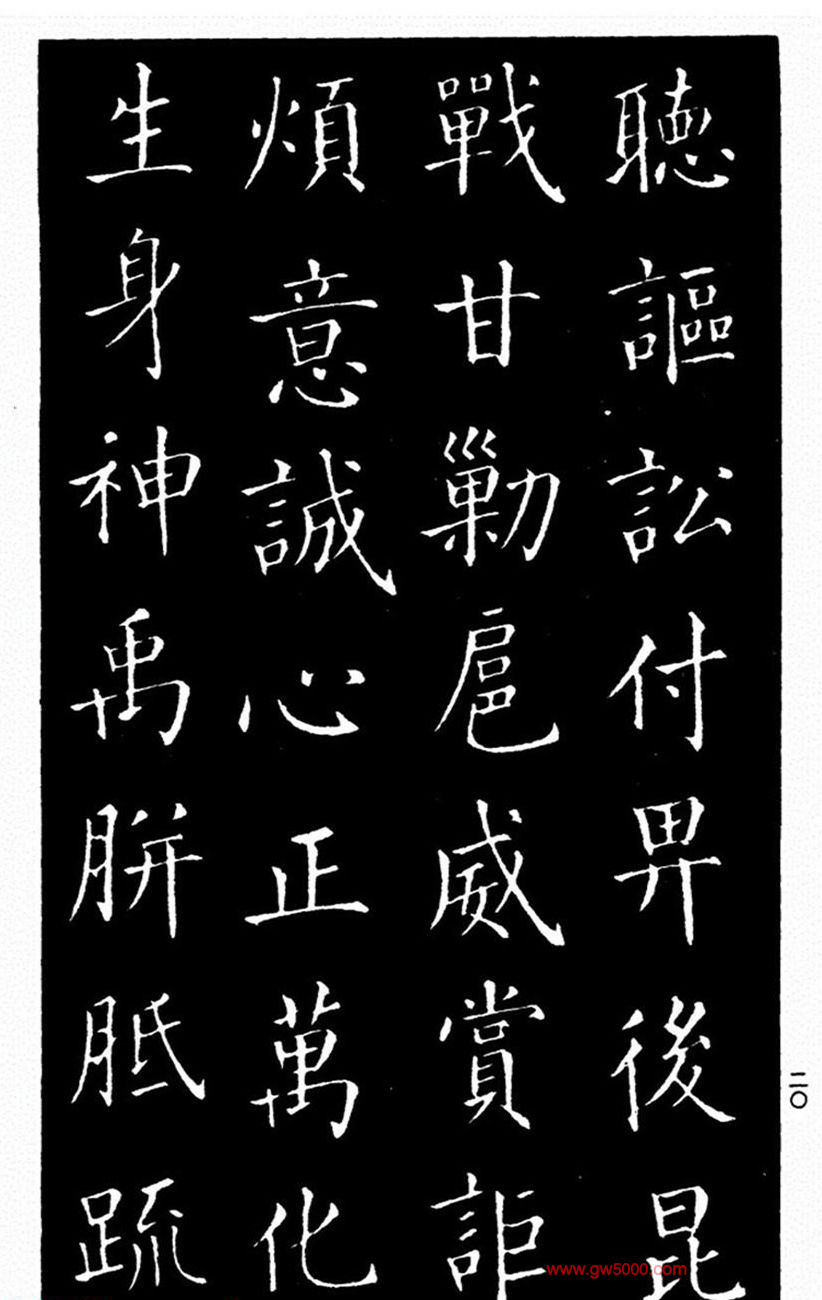 聽謳訟付畀後昆
戰甘勦扈威賞詎
煩意誠心正萬化
生身神禹胼胝疏
二〇
www.gw5000.com